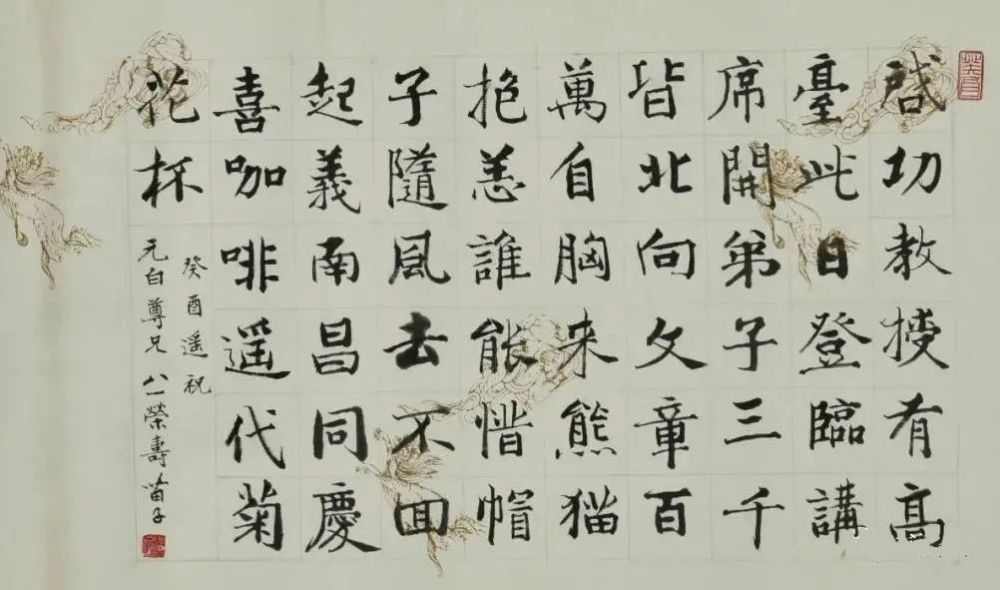 啟功教授有高
臺此日登臨講
席開弟子三千
皆北向文章百
萬自胸来熊猫
抱恙誰能惜帽
子隨風去不囬
起義南昌同慶
喜咖啡遥代菊
花杯
癸酉遥祝
元白尊兄八一榮壽苗子